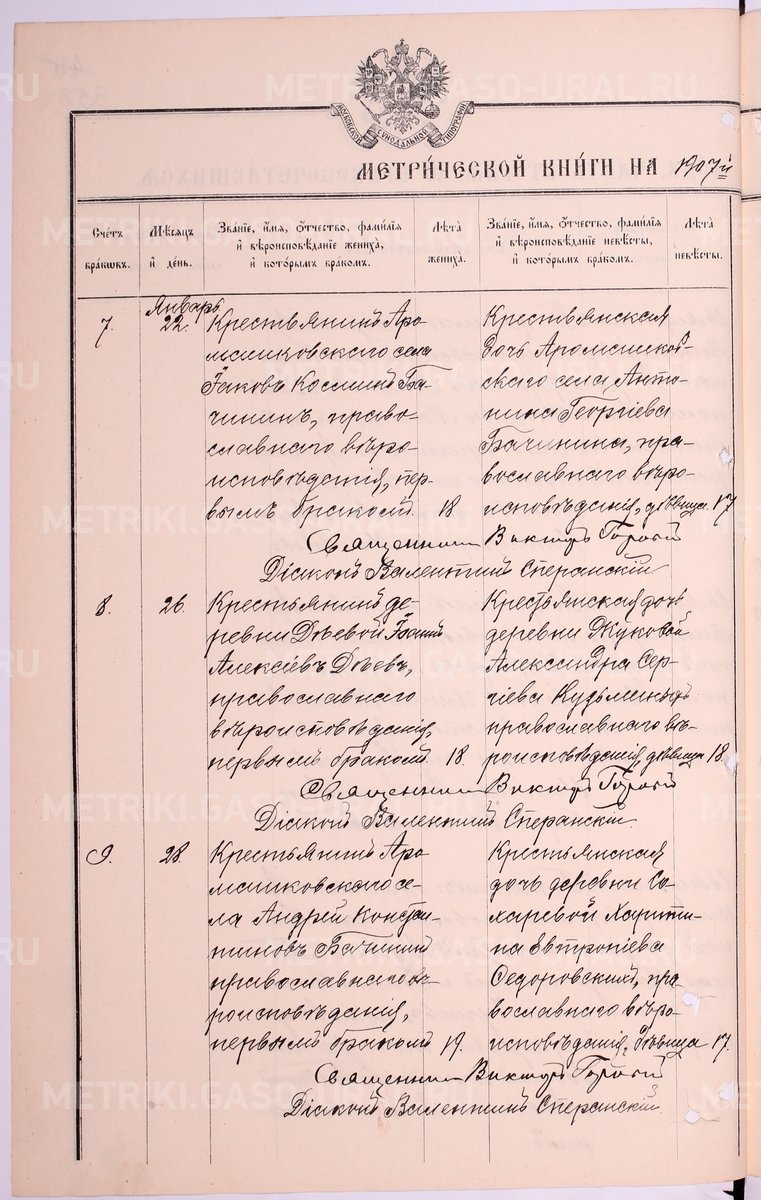 МОСКОВСКОЙ СУНОДАЛЬНОЙ ТИПОГРАФІИ
МЕТРИ́ЧЕСКОЙ КНИ́ГИ НА 1907й
Счётъ бра́ковъ.
Мѣ́сяцъ и҆ де́нь.
Зва́нїе, и҆́мѧ, ѻ҆́тчество, фами́лїѧ и҆ вѣроисповѣ́данїе жениха̀, и҆ кото́рымъ бра́комъ.
Лѣ́та жениха̀.
Зва́нїе, и҆́мѧ, ѻ҆́тчество, фами́лїѧ и҆ вѣроисповѣ́данїе невѣ́сты, и҆ кото́рымъ бра́комъ.
Лѣ́та невѣ́сты.
Январь
7.
22.
Крестьянинъ Аро-
машковскаго села
Іаковъ Косминъ Ба-
чининъ, право-
славнаго вѣро-
исповѣданія, пер-
вымъ бракомъ.
18
Крестьянская
дочь Аромашков-
скаго села Анто-
нина Георгіева
Бачинина, пра-
вославнаго вѣро-
исповѣданія, дѣвица.
17
Священникъ Викторъ
Діаконъ Валентинъ Сперанскій
8.
26.
Крестьянинъ де-
ревни Дѣевой Іоаннъ
Алексіевъ Дѣевъ,
православнаго
вѣроисповѣданія,
первымъ бракомъ.
18.
Крестьянская дочь
деревни Жуковой
Александра Сер-
гіева Кузьминыхъ
православнаго вѣ-
роисповѣданія, дѣвица
18.
Священникъ Викторъ
Діаконъ Валентинъ Сперанскій.
9.
28.
Крестьянинъ Аро-
машковскаго се-
ла Андрей Констан-
тиновъ Бачининъ
православнаго вѣ-
роисповѣданія,
первымъ бракомъ
19.
Крестьянская
дочь деревни Со-
харевой Харити-
на Евтропіева
Ѳедоровскихъ, пра-
вославнаго вѣро-
исповѣданія, дѣвица
17.
Священникъ Викторъ
Діаконъ Валентинъ Сперанскій
METRIKI.GASO-URAL.RU